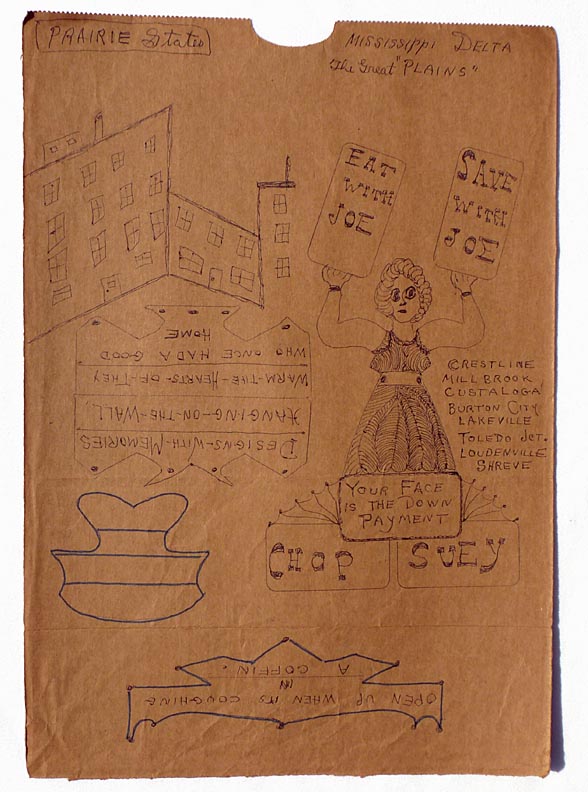 PRAIRIE States
MISSISSIPPI DELTA
The Great "PLAINS"
EAT
WITH
JOE
SAVE
WITH
JOE
DESIGNS-WITH-MEMORIES
HANGING-ON-THE-WALL
WARM-THE-HEARTS-OF-THEY
WHO ONCE HAD A GOOD
HOME
CRESTLINE
MILLBROOK
CUSTALOGA
BURTON CITY
LAKEVILLE
TOLEDO Jct.
LOUDENVILLE
SHREVE
YOUR FACE
IS THE DOWN
PAYMENT
CHOP SUEY
OPEN UP WHEN ITS COUGHING
IN
A COFFIN.